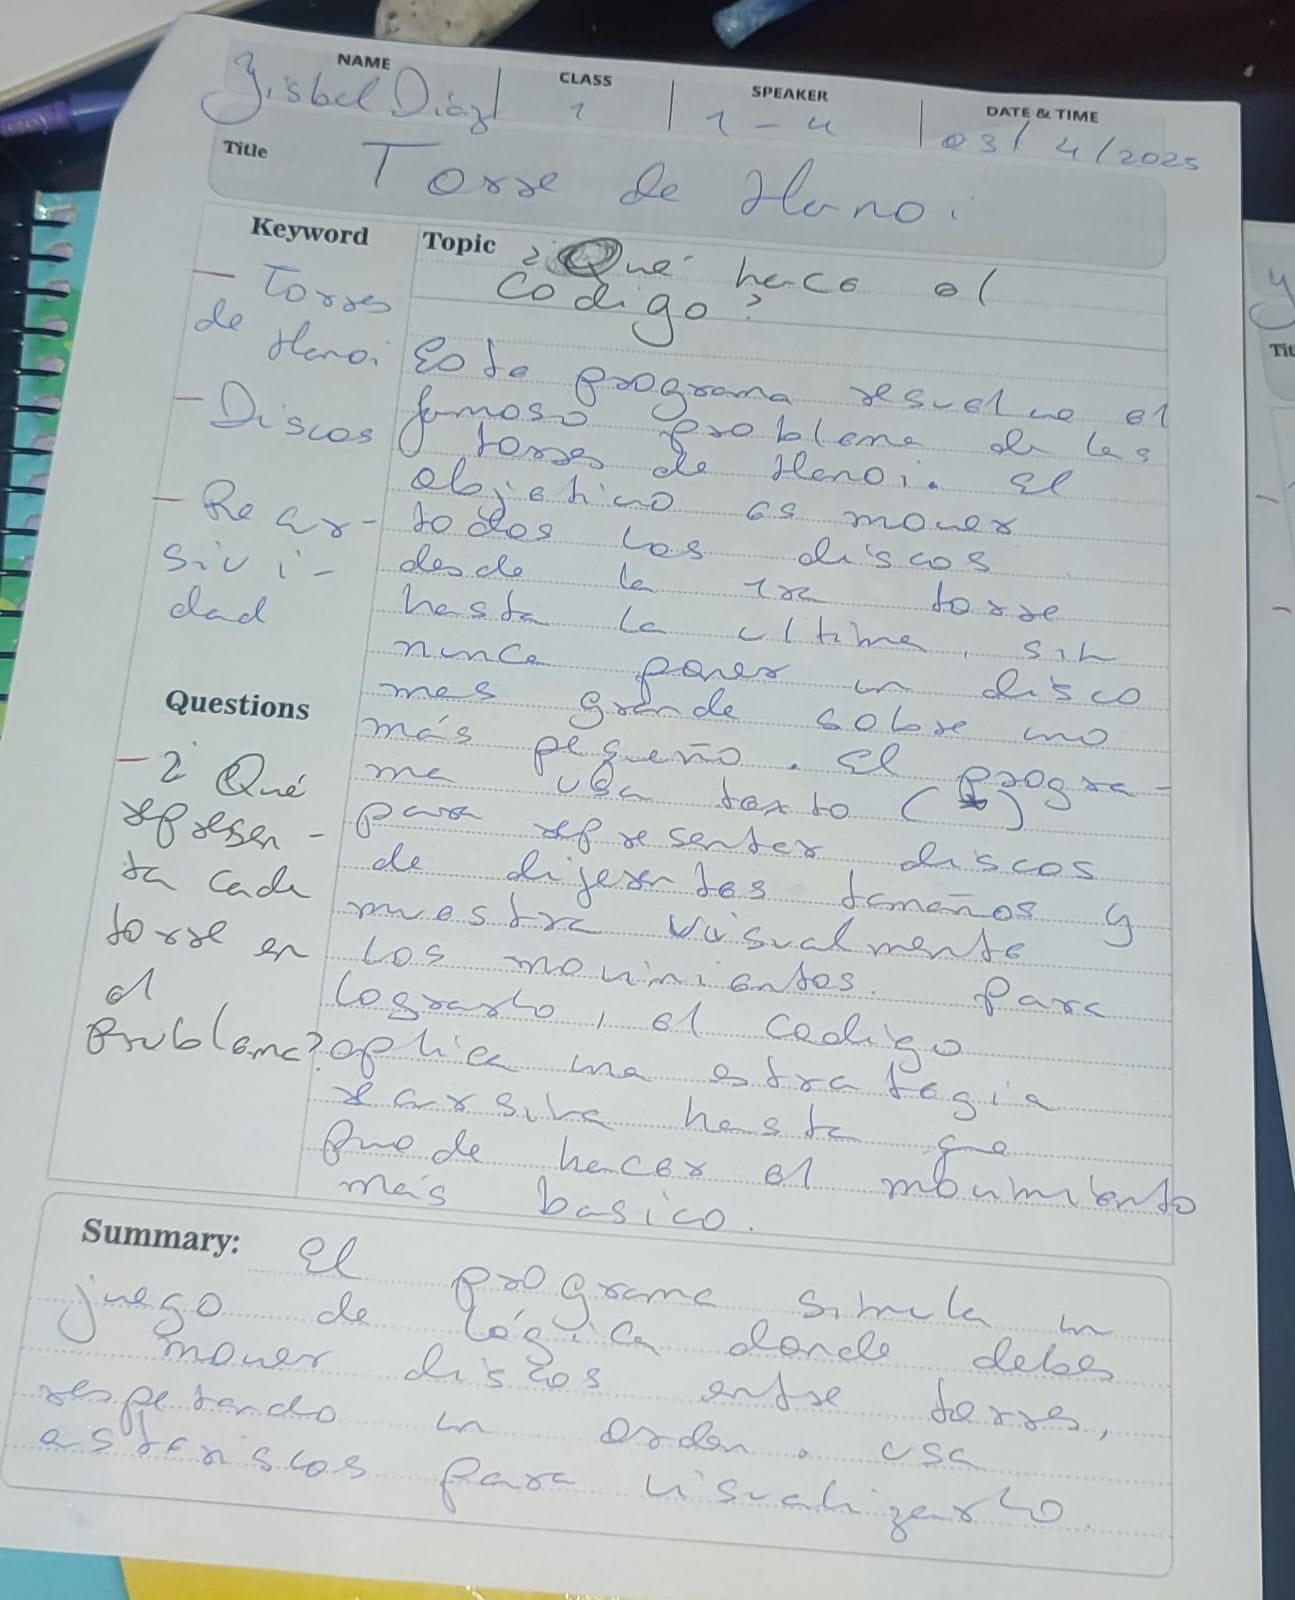 NAME CLASS SPEAKER DATE & TIME
Yisbel Diaz 1 1-4 03/4/2025
Title Torre de Hanoi
Keyword
- Torres
de Hanoi
- Discos
- Recur-
sivi-
dad
Questions
- ¿Qué
represen-
ta cada
torre en
el
problema?
Topic ¿Qué hace el
codigo?
Este programa resuelve el
famoso problema de las
torres de Hanoi. El
objetivo es mover
todos los discos
desde la 1ra torre
hasta la ultima, sin
nunca poner un disco
mas grande sobre uno
más pequeño. El progra-
ma usa texto (*)
para representar discos
de diferentes tamaños y
muestra visualmente
los movimientos. Para
lograrlo, el codigo
aplica una estrategia
recursiva hasta que
puede hacer el movimiento
más basico.
Summary: El programa simula un
juego de lógica donde debes
mover discos entre torres,
respetando un orden. usa
asteriscos para visualizarlo.
Tit